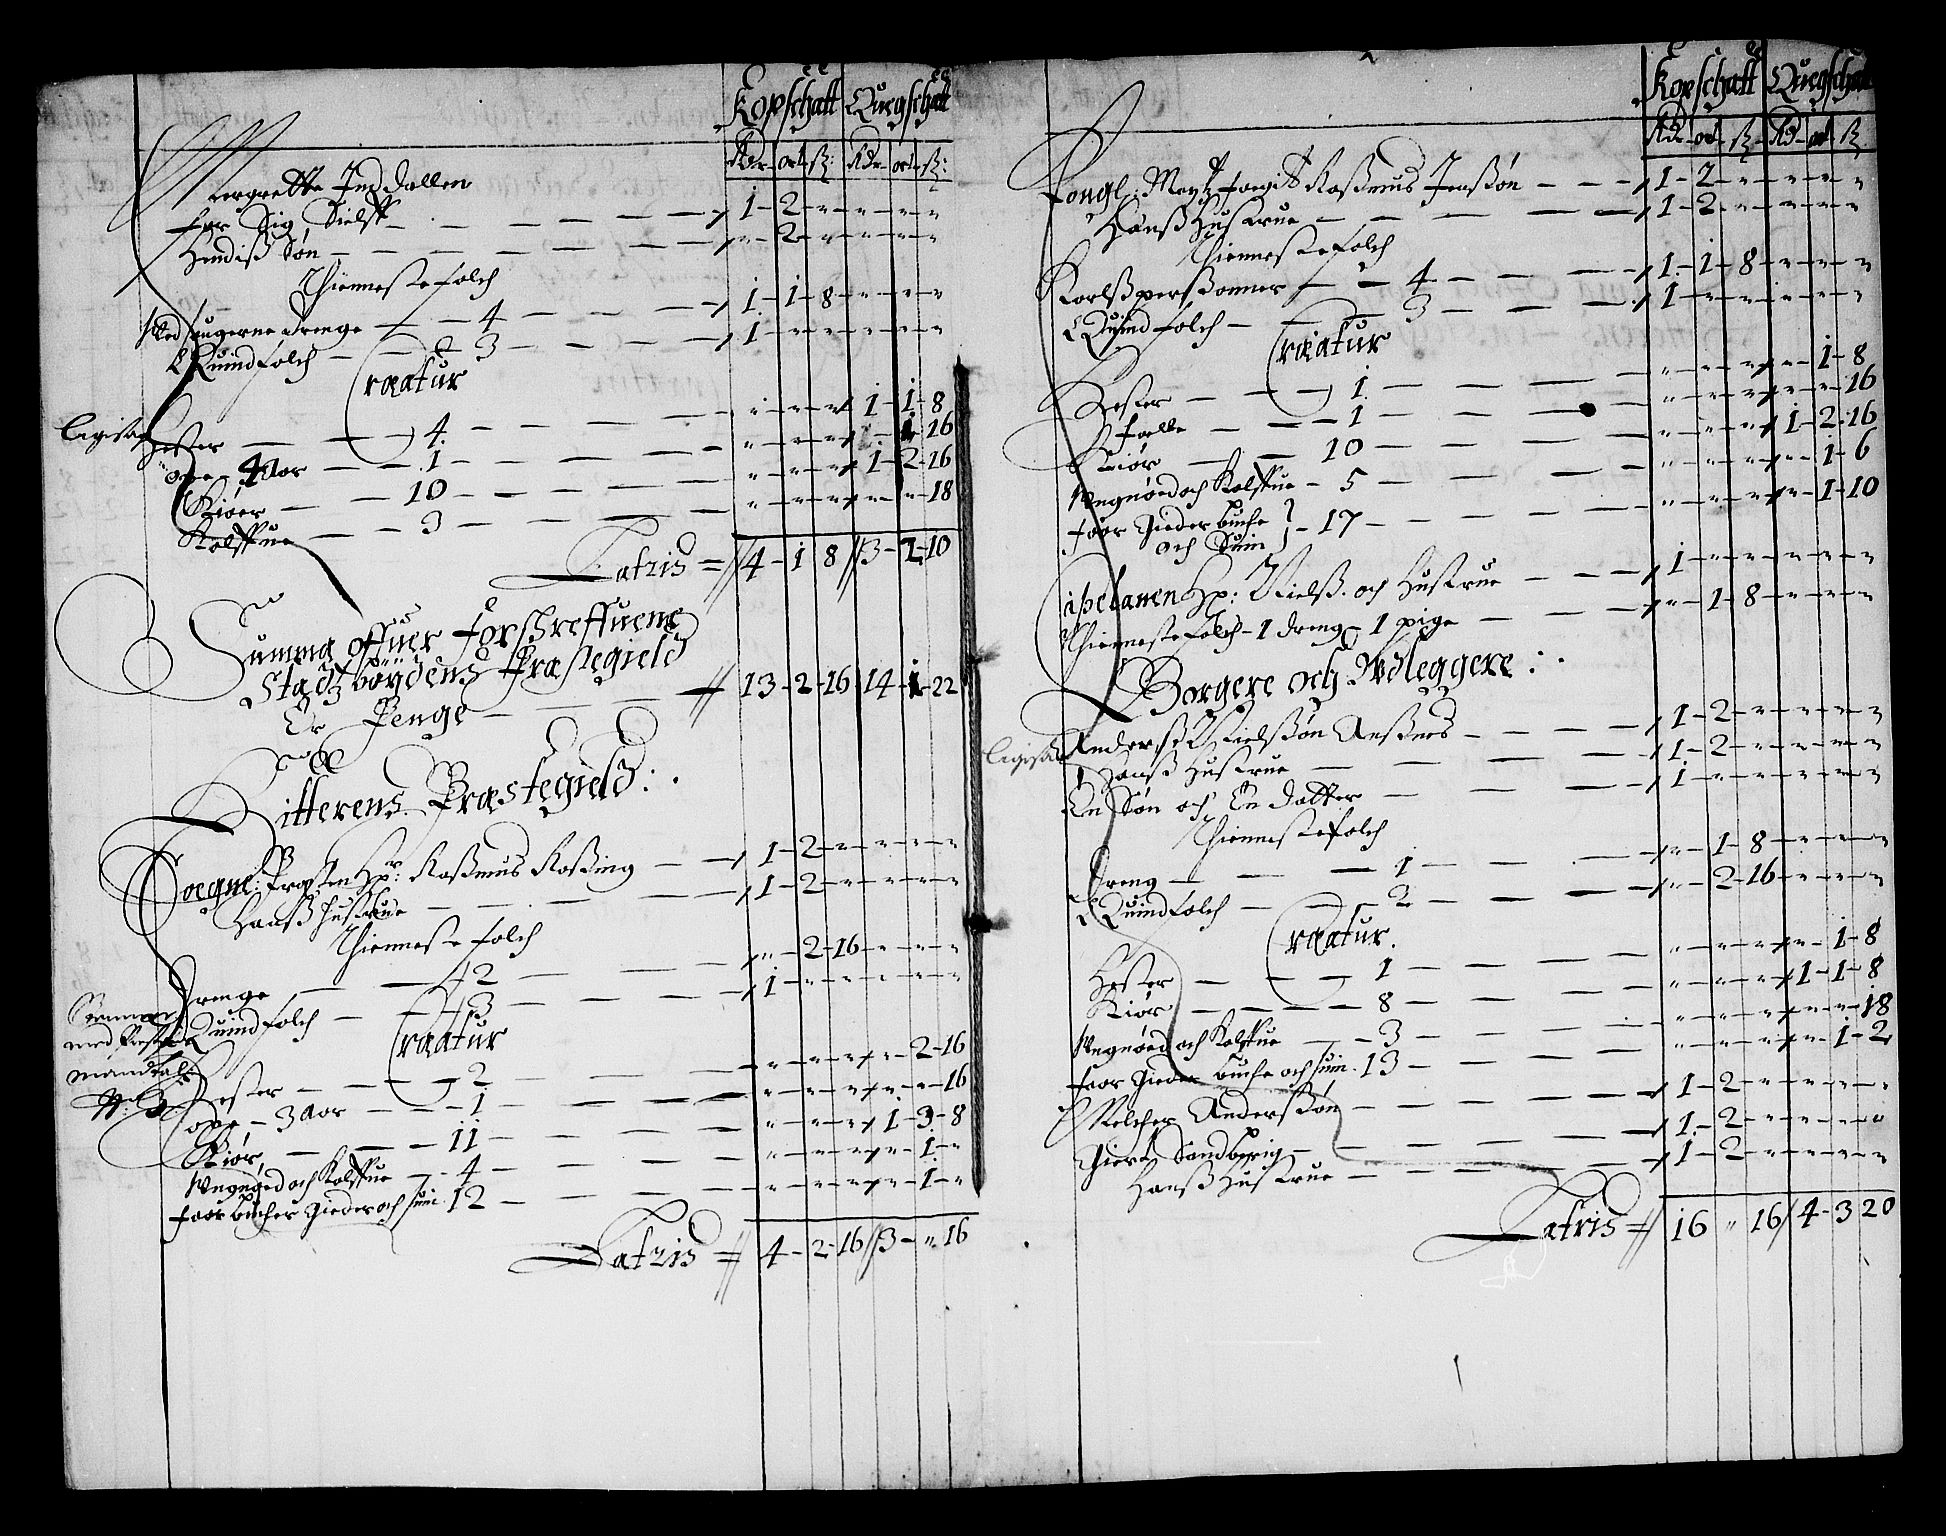 Kopschatt Quegschatt
Rdr ort ß: Rdr ort ß:
Mergrette Inddallen
for Sig Sielff — 1 - 2 - " - " - " - "
Hindiß Søn — " - 2 - " - " - " - "
Thienneste folch
drenge — 4 — 1 - 1 - 8 - " - " - "
Quindfolch — 3 — 1 - " - " - " - " - "
Creatur
Hester — 4 — " - " - " 1 - 1 - 8
4 Aor — 1 — 16
Kiøer — 10 — " - " - " 1 - 2 - 16
Kalffue — 3 — " - " - " - " - " - 18
Latris = 4 - 1 8 // 3 - 2 - 10
Summa offuer forschreffuene
Stadzbøydens Præstegield
Er Penge — 13 - 2 - 16 14 - 1 - 22
Hitterens Præstegield:
Soegne: Præsten Hr: Raßmus Roßing — 1 - 2 - " - " - " - "
Hanß hustrue — 1 - 2 - " - " - " - "
Thienneste folch
Drenge — 2 — " - 2 - 16 - " - " - "
Quindfolch — 3 — 1 - " - " - " - " - "
med
mandtal
No: 3
Creatur
Hester — 2 — " - " - " - " - 2 - 16
3 Aor — 1 — " - " - " - " - " - 16
Kiør — 11 — " - " - " 1 - 3 - 8
Ungnød och Kalffue — 4 — " - " - " - " - 1 - "
Faar bucher Gieder och suin 12 — " - " - " - " - 1 - "
Latris = 4 - 2 - 16 // 3 - " 16
Kopschatt Quegschatt
Rd ort ß Rd ort ß
Fougl: Raßmus Jenßøn — 1 - 2 - " - " - " - "
Hanß Hustrue — 1 - 2 - " - " - " - "
Thienneste folch
Karlßperßonner — 4 — 1 - 1 - 8 - " - " - "
Quindfolch — 3 — 1 - " - " - " - " - "
Creatur
Hester — 1 — " - " - " - " - 1 - 8
Folle — 1 — " - " - " - " - " - 16
Kiør — 10 — " - " - " 1 - 2 - 16
Ungnød och Kalffue — 5 — " - " - " - " - 1 - 6
Faar Gieder buche
och Suin } - 17 — " - " - " - " - 1 - 10
Capelanen Hr: Nielß och Hustrue — 1 - " - " - " - " - "
Thienneste folch - 1 dreng - 1 pige — " - 1 - 8 - " - " - "
Borgere och Udleggere:
Anders Nielßøn — 1 - 2 - " - " - " - "
Hanß Hustrue — 1 - 2 - " - " - " - "
En Søn och En datter — 1 - " - " - " - " - "
Thiennestefolch
Dreng — 1 — " - 1 - 8 - " - " - "
Quindfolch — 2 — " - 2 - 16 - " - " - "
Creatur.
Hester — 1 — " - " - " - " - 1 - 8
Kiør — 8 — " - " - " 1 - 1 - 8
Ungnød och Kalffue — 3 — " - " - " - " - " - 18
Faar Gieder buche och suin. 13 — " - " - " - " - 1 - 2
Melcher Anderßøn — 1 - 2 - " - " - " - "
Giert Sandberig — 1 - 2 - " - " - " - "
Hanß Hustrue — 1 - 2 - " - " - " - "
Latris = 16 " 16 / 4 - 3 20